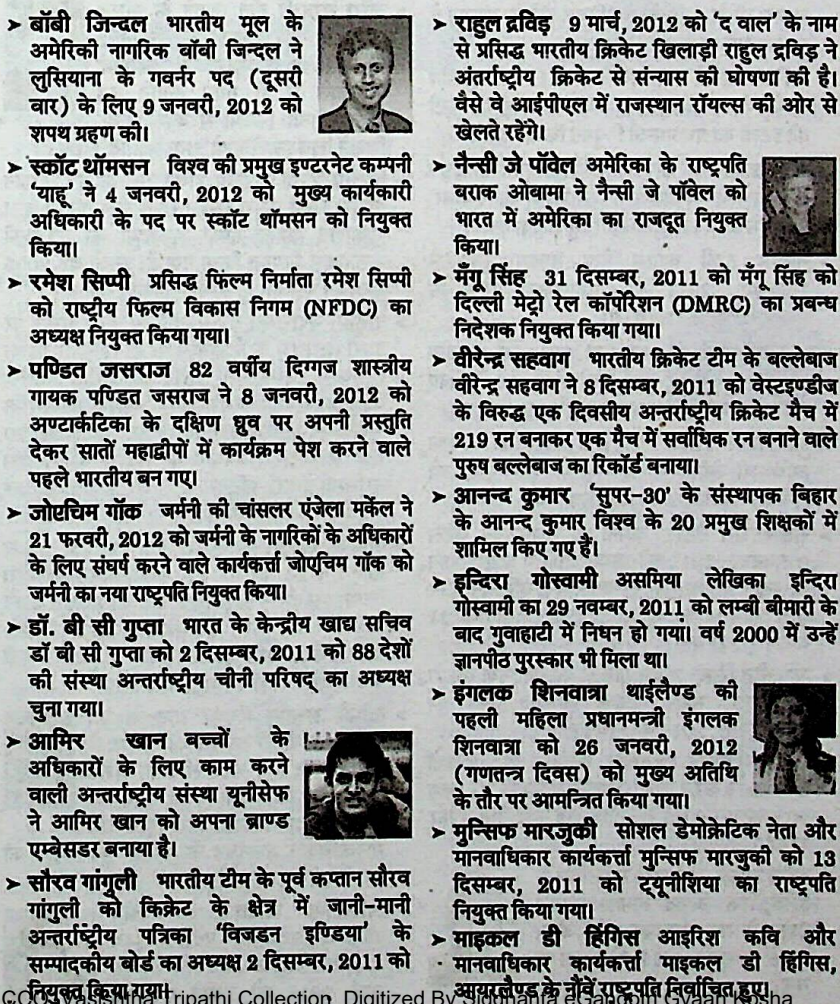 ➤ बॉबी जिन्दल भारतीय मूल के
अमेरिकी नागरिक बॉबी जिन्दल ने
लुसियाना के गवर्नर पद (दूसरी
वार) के लिए 9 जनवरी, 2012 को
शपथ ग्रहण की।
➤ स्कॉट थॉमसन विश्व की प्रमुख इण्टरनेट कम्पनी
'याहू' ने 4 जनवरी, 2012 को मुख्य कार्यकारी
अधिकारी के पद पर स्कॉट थॉमसन को नियुक्त
किया।
➤ रमेश सिप्पी प्रसिद्ध फिल्म निर्माता रमेश सिप्पी
को राष्ट्रीय फिल्म विकास निगम (NFDC) का
अध्यक्ष नियुक्त किया गया।
➤ पण्डित जसराज 82 वर्षीय दिग्गज शास्त्रीय
गायक पण्डित जसराज ने 8 जनवरी, 2012 को
अण्टार्कटिका के दक्षिण ध्रुव पर अपनी प्रस्तुति
देकर सातों महाद्वीपों में कार्यक्रम पेश करने वाले
पहले भारतीय बन गए।
➤ जोएचिम गॉक जर्मनी की चांसलर एंजेला मर्केल ने
21 फरवरी, 2012 को जर्मनी के नागरिकों के अधिकारों
के लिए संघर्ष करने वाले कार्यकर्त्ता जोएचिम गॉक को
जर्मनी का नया राष्ट्रपति नियुक्त किया।
➤ डॉ. बी सी गुप्ता भारत के केन्द्रीय खाद्य सचिव
डॉ बी सी गुप्ता को 2 दिसम्बर, 2011 को 88 देशों
की संस्था अन्तर्राष्ट्रीय चीनी परिषद् का अध्यक्ष
चुना गया।
➤ आमिर खान बच्चों के
अधिकारों के लिए काम करने
वाली अन्तर्राष्ट्रीय संस्था यूनीसेफ
ने आमिर खान को अपना ब्राण्ड
एम्बेसडर बनाया है।
➤ सौरव गांगुली भारतीय टीम के पूर्व कप्तान सौरव
गांगुली को किक्रेट के क्षेत्र में जानी-मानी
अन्तर्राष्ट्रीय पत्रिका 'विजडन इण्डिया' के
सम्पादकीय बोर्ड का अध्यक्ष 2 दिसम्बर, 2011 को
नियुक्त किया गया।
➤ राहुल द्रविड़ 9 मार्च, 2012 को 'द वाल' के नाम
से प्रसिद्ध भारतीय क्रिकेट खिलाड़ी राहुल द्रविड़ ने
अंतर्राष्ट्रीय क्रिकेट से संन्यास की घोषणा की है।
वैसे वे आईपीएल में राजस्थान रॉयल्स की ओर से
खेलते रहेंगे।
➤ नैन्सी जे पॉवेल अमेरिका के राष्ट्रपति
बराक ओबामा ने नैन्सी जे पॉवेल को
भारत में अमेरिका का राजदूत नियुक्त
किया।
➤ मँगू सिंह 31 दिसम्बर, 2011 को मँगू सिंह को
दिल्ली मेट्रो रेल कॉर्पोरेशन (DMRC) का प्रबन्ध
निदेशक नियुक्त किया गया।
➤ वीरेन्द्र सहवाग भारतीय क्रिकेट टीम के बल्लेबाज
वीरेन्द्र सहवाग ने 8 दिसम्बर, 2011 को वेस्टइण्डीज
के विरुद्ध एक दिवसीय अन्तर्राष्ट्रीय क्रिकेट मैच में
219 रन बनाकर एक मैच में सर्वाधिक रन बनाने वाले
पुरुष बल्लेबाज का रिकॉर्ड बनाया।
➤ आनन्द कुमार 'सुपर-30' के संस्थापक बिहार
के आनन्द कुमार विश्व के 20 प्रमुख शिक्षकों में
शामिल किए गए हैं।
➤ इन्दिरा गोस्वामी असमिया लेखिका इन्दिरा
गोस्वामी का 29 नवम्बर, 2011 को लम्बी बीमारी के
बाद गुवाहाटी में निधन हो गया। वर्ष 2000 में उन्हें
ज्ञानपीठ पुरस्कार भी मिला था।
➤ इंगलक शिनवात्रा थाईलैण्ड की
पहली महिला प्रधानमन्त्री इंगलक
शिनवात्रा को 26 जनवरी, 2012
(गणतन्त्र दिवस) को मुख्य अतिथि
के तौर पर आमन्त्रित किया गया।
➤ मुन्सिफ मारजुकी सोशल डेमोक्रेटिक नेता और
मानवाधिकार कार्यकर्त्ता मुन्सिफ मारजुकी को 13
दिसम्बर, 2011 को ट्यूनीशिया का राष्ट्रपति
नियुक्त किया गया।
➤ माइकल डी हिंगिस आइरिश कवि और
मानवाधिकार कार्यकर्त्ता माइकल डी हिंगिस,
आयरलैण्ड के नौवें राष्ट्रपति निर्वाचित हुए।
CC0. Vasishtha Tripathi Collection. Digitized By Siddhanta eGangotri Gyaan Kosha